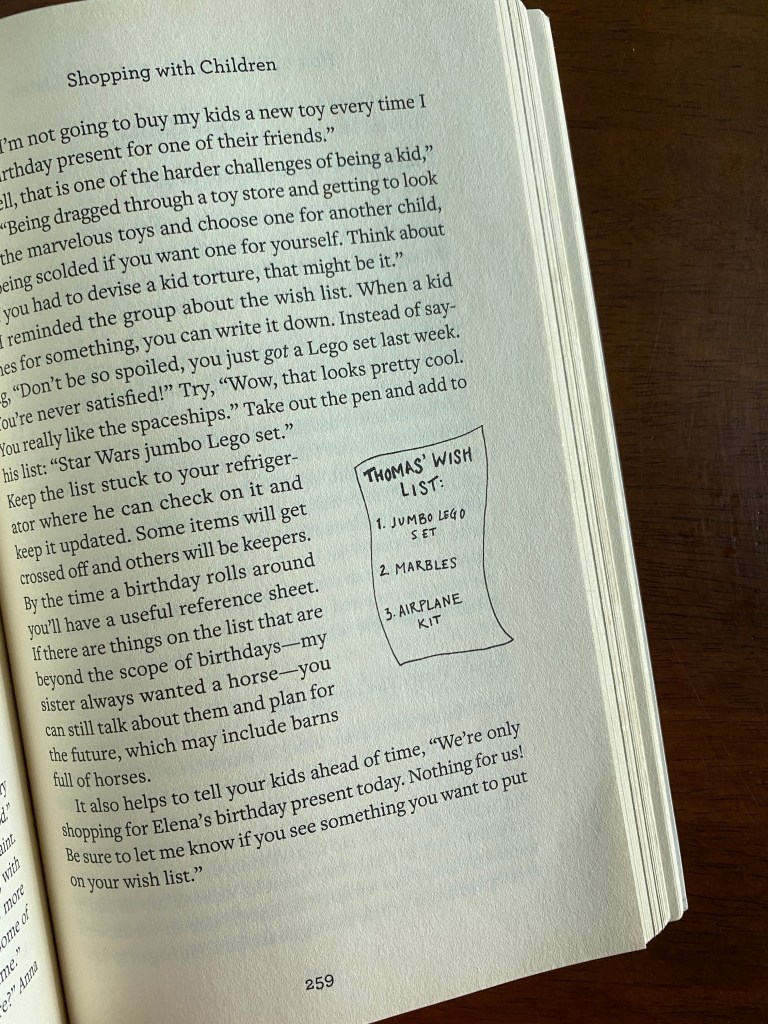 Shopping with Children
I'm not going to buy my kids a new toy every time I
present for one of their friends."
that is one of the harder challenges of being a kid,"
"Being dragged through a toy store and getting to look
the marvelous toys and choose one for another child,
being scolded if you want one for yourself. Think about
you had to devise a kid torture, that might be it."
I reminded the group about the wish list. When a kid
for something, you can write it down. Instead of say-
"Don't be so spoiled, you just got a Lego set last week.
You're never satisfied!" Try, "Wow, that looks pretty cool.
You really like the spaceships." Take out the pen and add to
his list: "Star Wars jumbo Lego set."
Keep the list stuck to your refriger-
ator where he can check on it and
keep it updated. Some items will get
crossed off and others will be keepers.
By the time a birthday rolls around
you'll have a useful reference sheet.
If there are things on the list that are
beyond the scope of birthdays—my
sister always wanted a horse—you
can still talk about them and plan for
the future, which may include barns
full of horses.
THOMAS' WISH
LIST:
1. JUMBO LEGO
SET
2. MARBLES
3. AIRPLANE
KIT
It also helps to tell your kids ahead of time, "We're only
shopping for Elena's birthday present today. Nothing for us!
Be sure to let me know if you see something you want to put
on your wish list."
259
with
more
ome of
me."
Anna